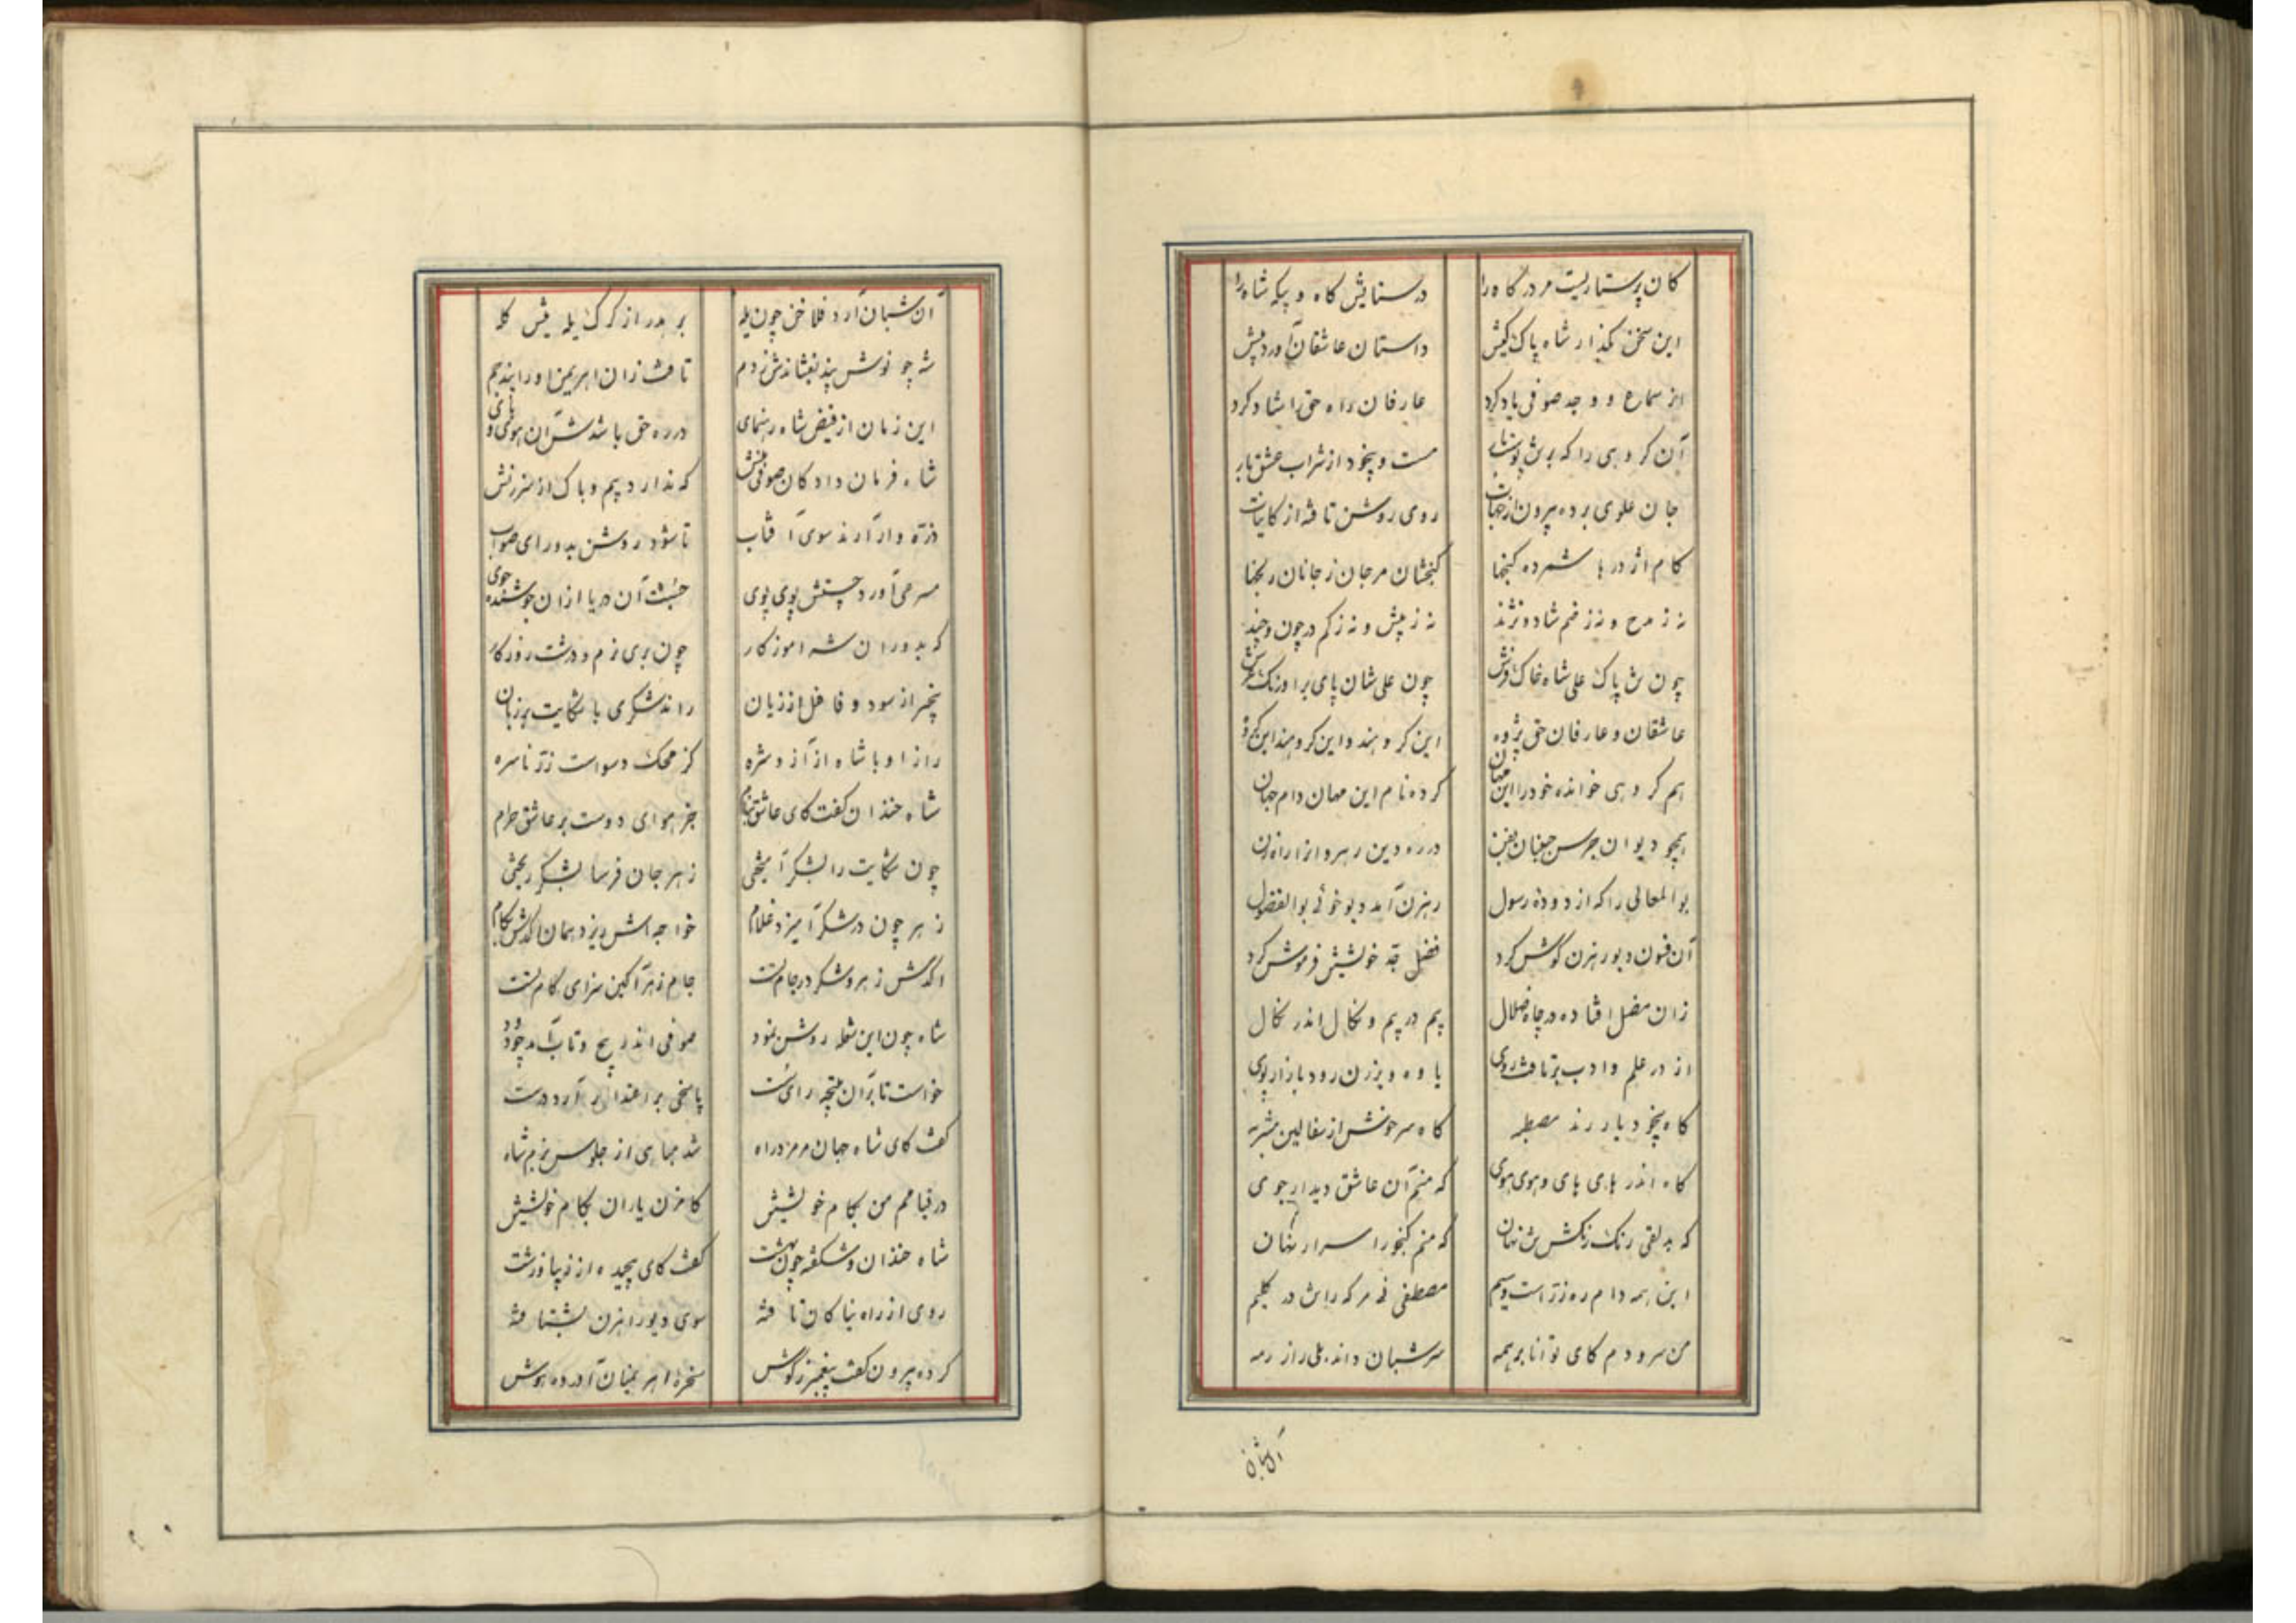 کان پرستاریت مر درگاه را در ستایش گاه و بیگه شاه را
این سخن بگذار شاه پاک کیش داستان عاشقان آورد پیش
از سماع و وجد صوفی یاد کرد عارفان راه حق را شاد کرد
آن گروهی را که مست و بیخود از شراب عشق یار
جان علوی برده بیرون از جهات روی روشن تافته از کاینات
کام اژدرها شمرده گنجها گنجشان مرجان ز جانان رنجها
نه ز مدح و نه ز ذم شاد و نژند نه ز بیش و نه ز کم در چون و چند
چون شه پاک علی شاه خاک فرش چون علی شان پای بر اورنگ عرش
عاشقان و عارفان حق پژوه این گروهند و این گروهند این گروه
هم گروهی خوانده خود را این مهان کرده نام این مهان دام جهان
همچو دیوان جرس جنبان در ره دین رهرو انرا راه زن
بوالمعالی را که از دوده رسول رهزن آمد دیو خوئی بوالفضول
آن فسون دیو رهزن گوش کرد فضل جد خویشتن فرموش کرد
زان مضل افتاده در چاه ضلال بیم در بیم و نکال اندر نکال
از در علم و ادب برتافت روی یاوه و برزن رود بازار پوی
گاه بیخود یار رند مصطبه گاه سرخوش از سفالین مشربه
گاه اندر های های و هوی هوی که منم آن عاشق دیدار جوی
که بدلقی رنگ رنگش تن نهان که منم گنجور اسرار نهان
این همه دام ره زر است و سیم مصطفی نی مر که راش در گلیم
من سرودم کای توانا بر همه سر شبان داند بلی راز رمه
آن شبان
آن شبان آرد فلاخن چون یله بر بدر از گرگ یله پیش گله
شه چو نوشش پند بفشاندش ز دم تافت زان اهریمن او را بند جم
این زمان از فیض شاه رهنمای در ره حق باشدش آن هوی و های
شاه فرمان داد کان صوفی منش که ندارد بیم و باک از سرزنش
ذره وار آرند سوی آفتاب تا شود روشن بدو رای صواب
سرهمی آورد چستش پوی پوی جست آن دریا ازان جوشنده جوی
که بدوران شه آموزگار چون بری نرم و درشت روزگار
بیخبر از سود و غافل از زیان راند شکری با شکایت بر زبان
راز او با شاه از آز و شره کز محک رسواست زر ناسره
شاه خندان گفت کای عاشق بنام جز هوای دوست بر عاشق حرام
چون شکایت را بشکر آمیختی زهر جان فرسا بشکر ریختی
زهر چون در شکر آمیزد غلام خواجه اش ریزد همان اکدش بکام
اکدش زهر و شکر در جام تست جام زهرآگین سزای کام تست
شاه چون این شعله روشن نمود صوفی اندر پیچ و تاب آمد چو دود
خواست تا بر آن نتیجه رای سست پاسخی بر اعتذار آرد درست
گفت کای شاه جهان مر مر در راه شد جدایی از جلوس بزم شاه
در نیامم من بکام خویشتن کامزن یاران بکام خویشتن
شاه خندان و شکفته چون بهشت گفت کای پیچیده از زیبا و زشت
روی از راه نیاکان تافته سوی دیو راهزن بشتافته
کرده بیرون گفت پیغمبر ز گوش سخره اهریمنان آورده هوش